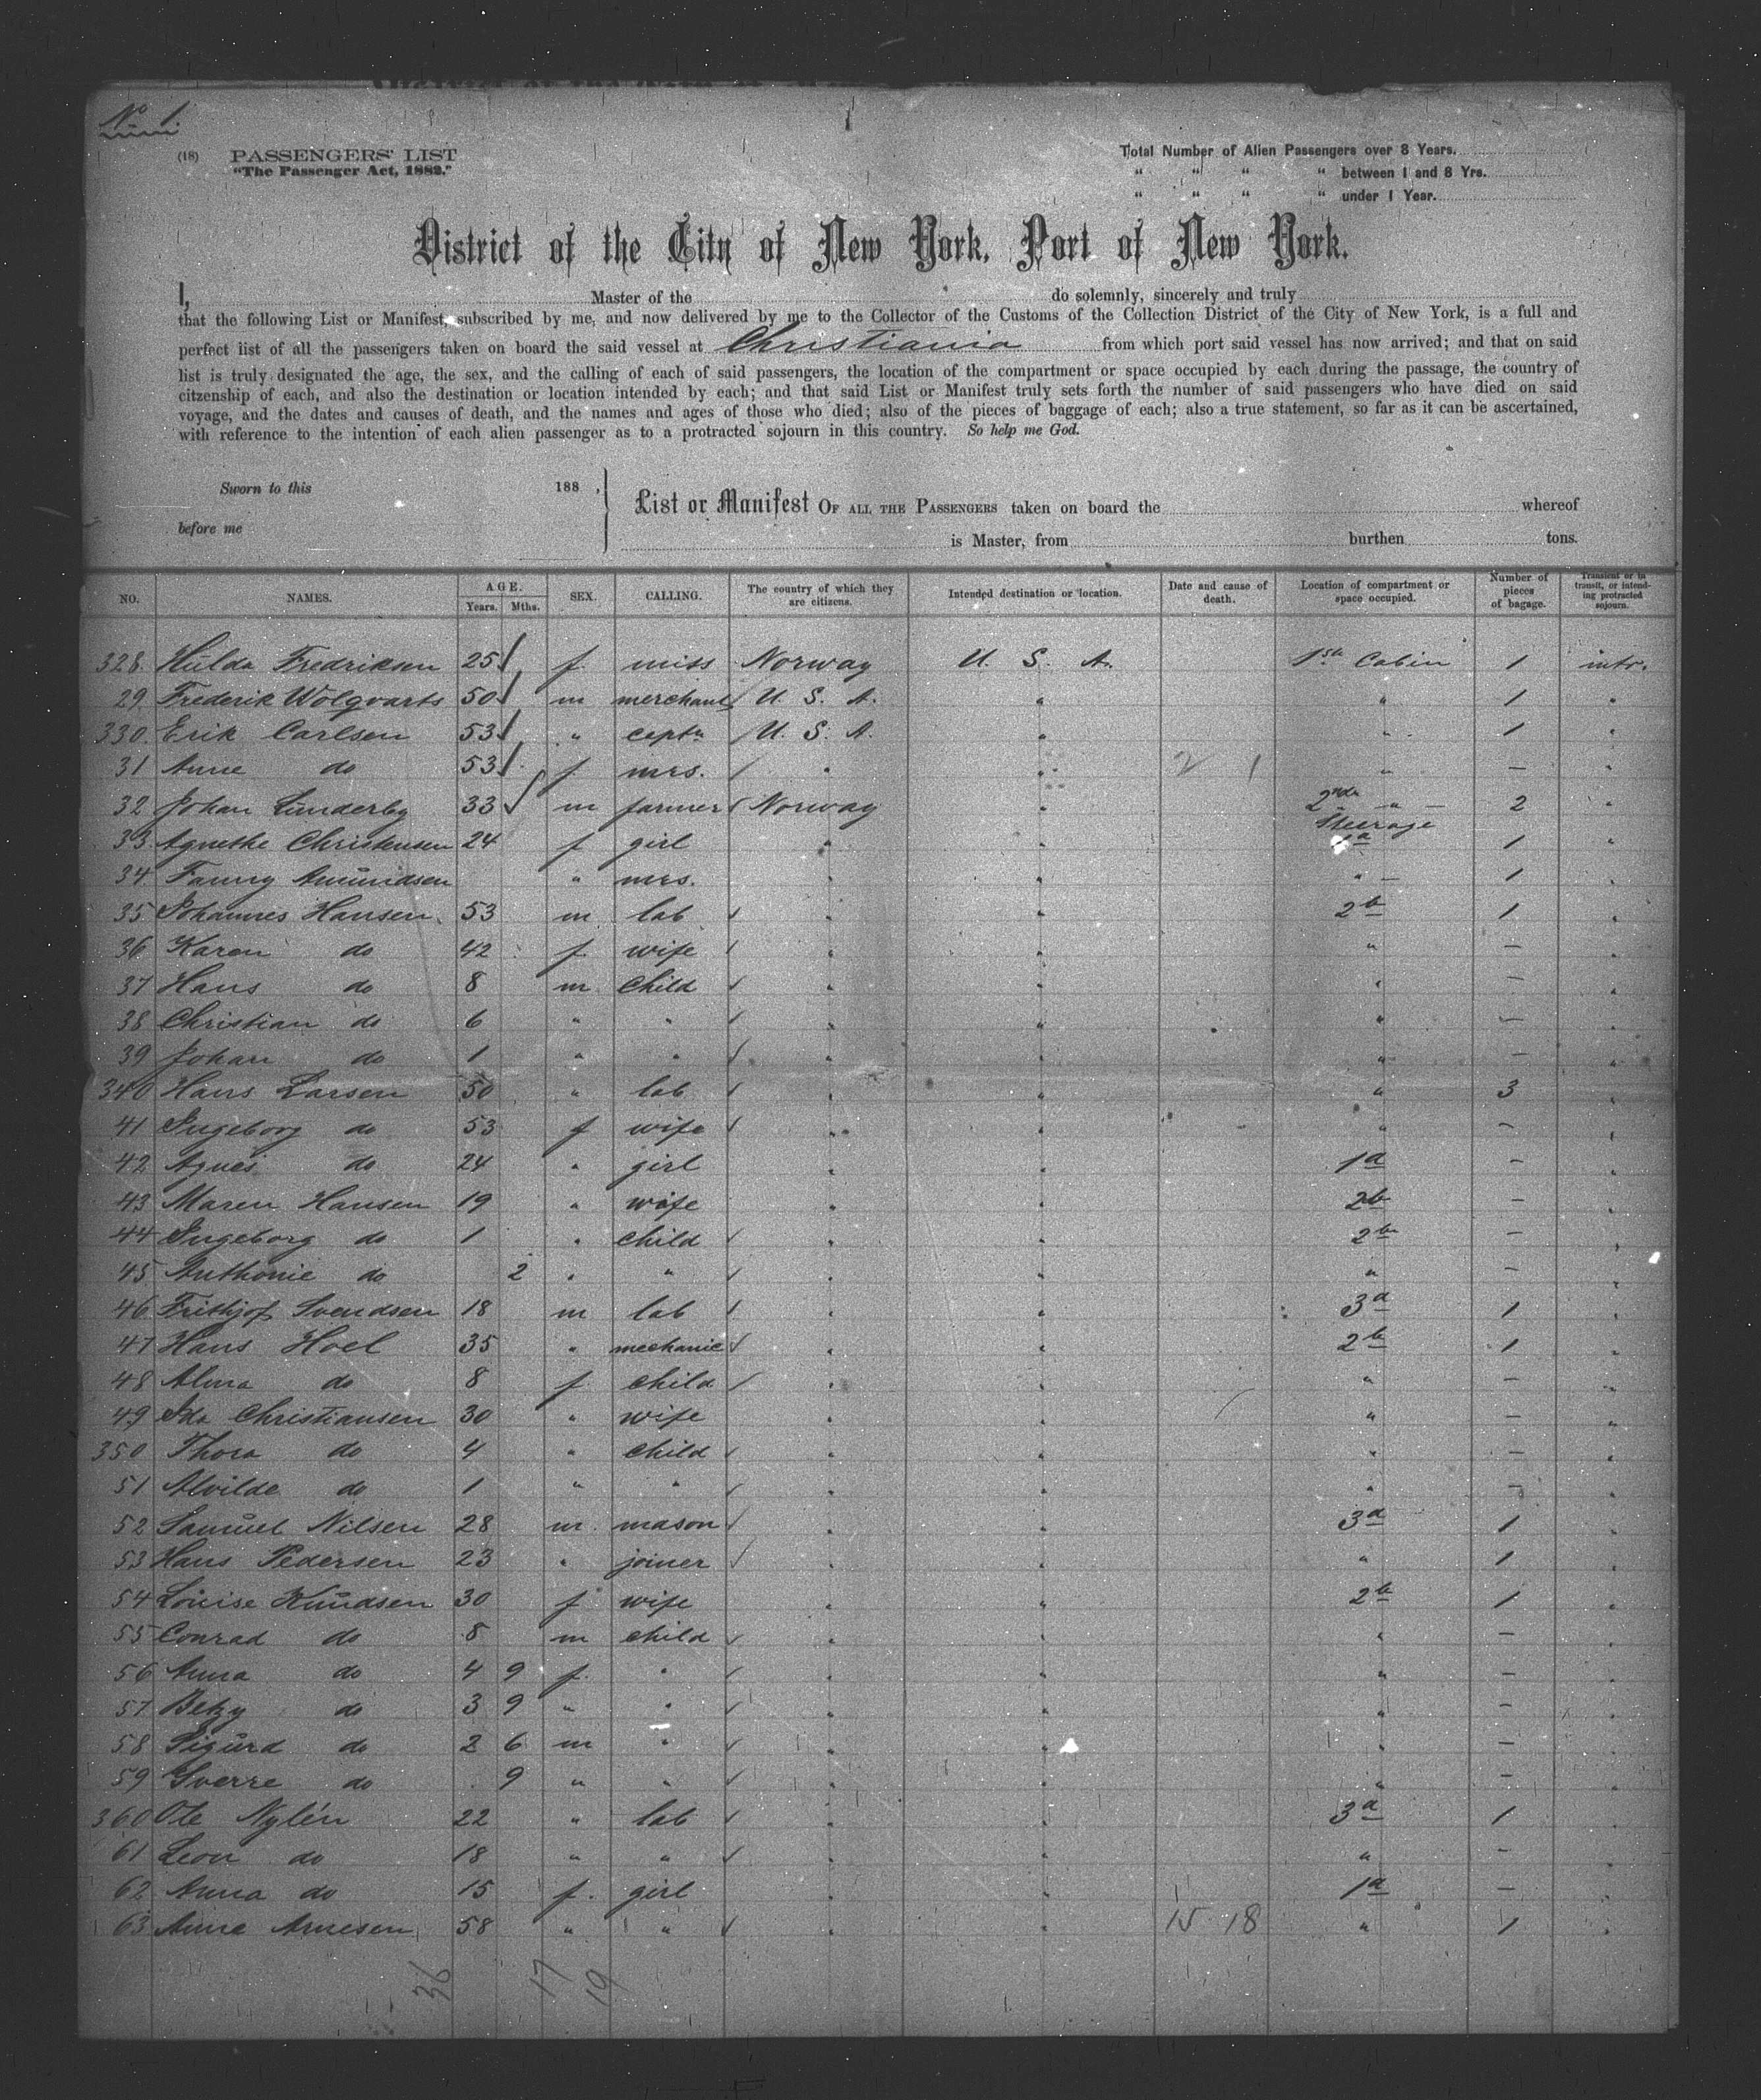 No 1.
(18) PASSENGERS' LIST
"The Passenger Act, 1882."
Total Number of Alien Passengers over 8 Years.
" " " " between 1 and 8 Yrs.
" " " " under 1 Year.
District of the City of New York, Port of New York.
I, Master of the do solemnly, sincerely and truly
that the following List or Manifest, subscribed by me, and now delivered by me to the Collector of the Customs of the Collection District of the City of New York, is a full and
perfect list of all the passengers taken on board the said vessel at Christiania from which port said vessel has now arrived; and that on said
list is truly designated the age, the sex, and the calling of each of said passengers, the location of the compartment or space occupied by each during the passage, the country of
citzenship of each, and also the destination or location intended by each; and that said List or Manifest truly sets forth the number of said passengers who have died on said
voyage, and the dates and causes of death, and the names and ages of those who died; also of the pieces of baggage of each; also a true statement, so far as it can be ascertained,
with reference to the intention of each alien passenger as to a protracted sojourn in this country. So help me God.
Sworn to this 188 ,
before me
List or Manifest OF ALL THE PASSENGERS taken on board the whereof
is Master, from burthen tons.
NO. NAMES. AGE. Years. Mths. SEX. CALLING. The country of which they are citizens. Intended destination or location. Date and cause of death. Location of compartment or space occupied. Number of pieces of bagage. Transient or in transit, or intending protracted sojourn.
328. Hulda Fredriksen 25 f. miss Norway U. S. A. 1st Cabin 1 intr.
29. Frederik Wolqvarts 50 m merchant U. S. A. " " 1 "
330. Erik Carlsen 53 " captn U. S. A. " " 1 "
31 Anne do 53 f. mrs. " " 2 1 " — "
32 Johan Lunderby 33 m farmer Norway " 2nd " — 2 "
Steerage
33. Agnethe Christensen 24 f girl " " a 1 "
34 Fanny Amundsen " mrs. " " " 1
35 Johannes Hansen 53 m lab " " 2b 1 "
36 Karen do 42 f. wife " " " — "
37 Hans do 8 m. child " " " — "
38 Christian do 6 " " " " " — "
39 Johan do 1 " " " " " — "
340 Hans Larsen 50 " lab " " " 3 "
41 Ingeborg do 53 f wife " " " — "
42 Agnes do 24 " girl " " 1a — "
43 Maren Hansen 19 " wife " " 2b — "
44 Ingeborg do 1 " child " " 2b — "
45 Anthonie do 2 " " " " " — "
46 Frithjof Svendsen 18 m lab " " 3a 1 "
47 Hans Hoel 35 " mechanic " " 2b 1 "
48 Alma do 8 f. child " " " — "
49 Ida Christiansen 30 " wife " " " — "
350 Thora do 4 " child " " " — "
51 Alvilde do 1 " " " " " — "
52 Samuel Nilsen 28 m. mason " " 3a 1 "
53 Hans Pedersen 23 " joiner " " " 1 "
54 Louise Knudsen 30 f wife " " 2b 1 "
55 Conrad do 8 m child " " " — "
56 Anna do 4 9 f. " " " " — "
57 Betzy do 3 9 " " " " " — "
58 Sigurd do 2 6 m " " " " — "
59 Sverre do 9 " " " " " — "
360 Ole Nylén 22 " lab " " 3a 1 "
61 Leon do 18 " " " " " — "
62 Anna do 15 f. girl " " 1a — "
63 Anne Arnesen 58 " " " " 15 18 " 1 "
36 17 19